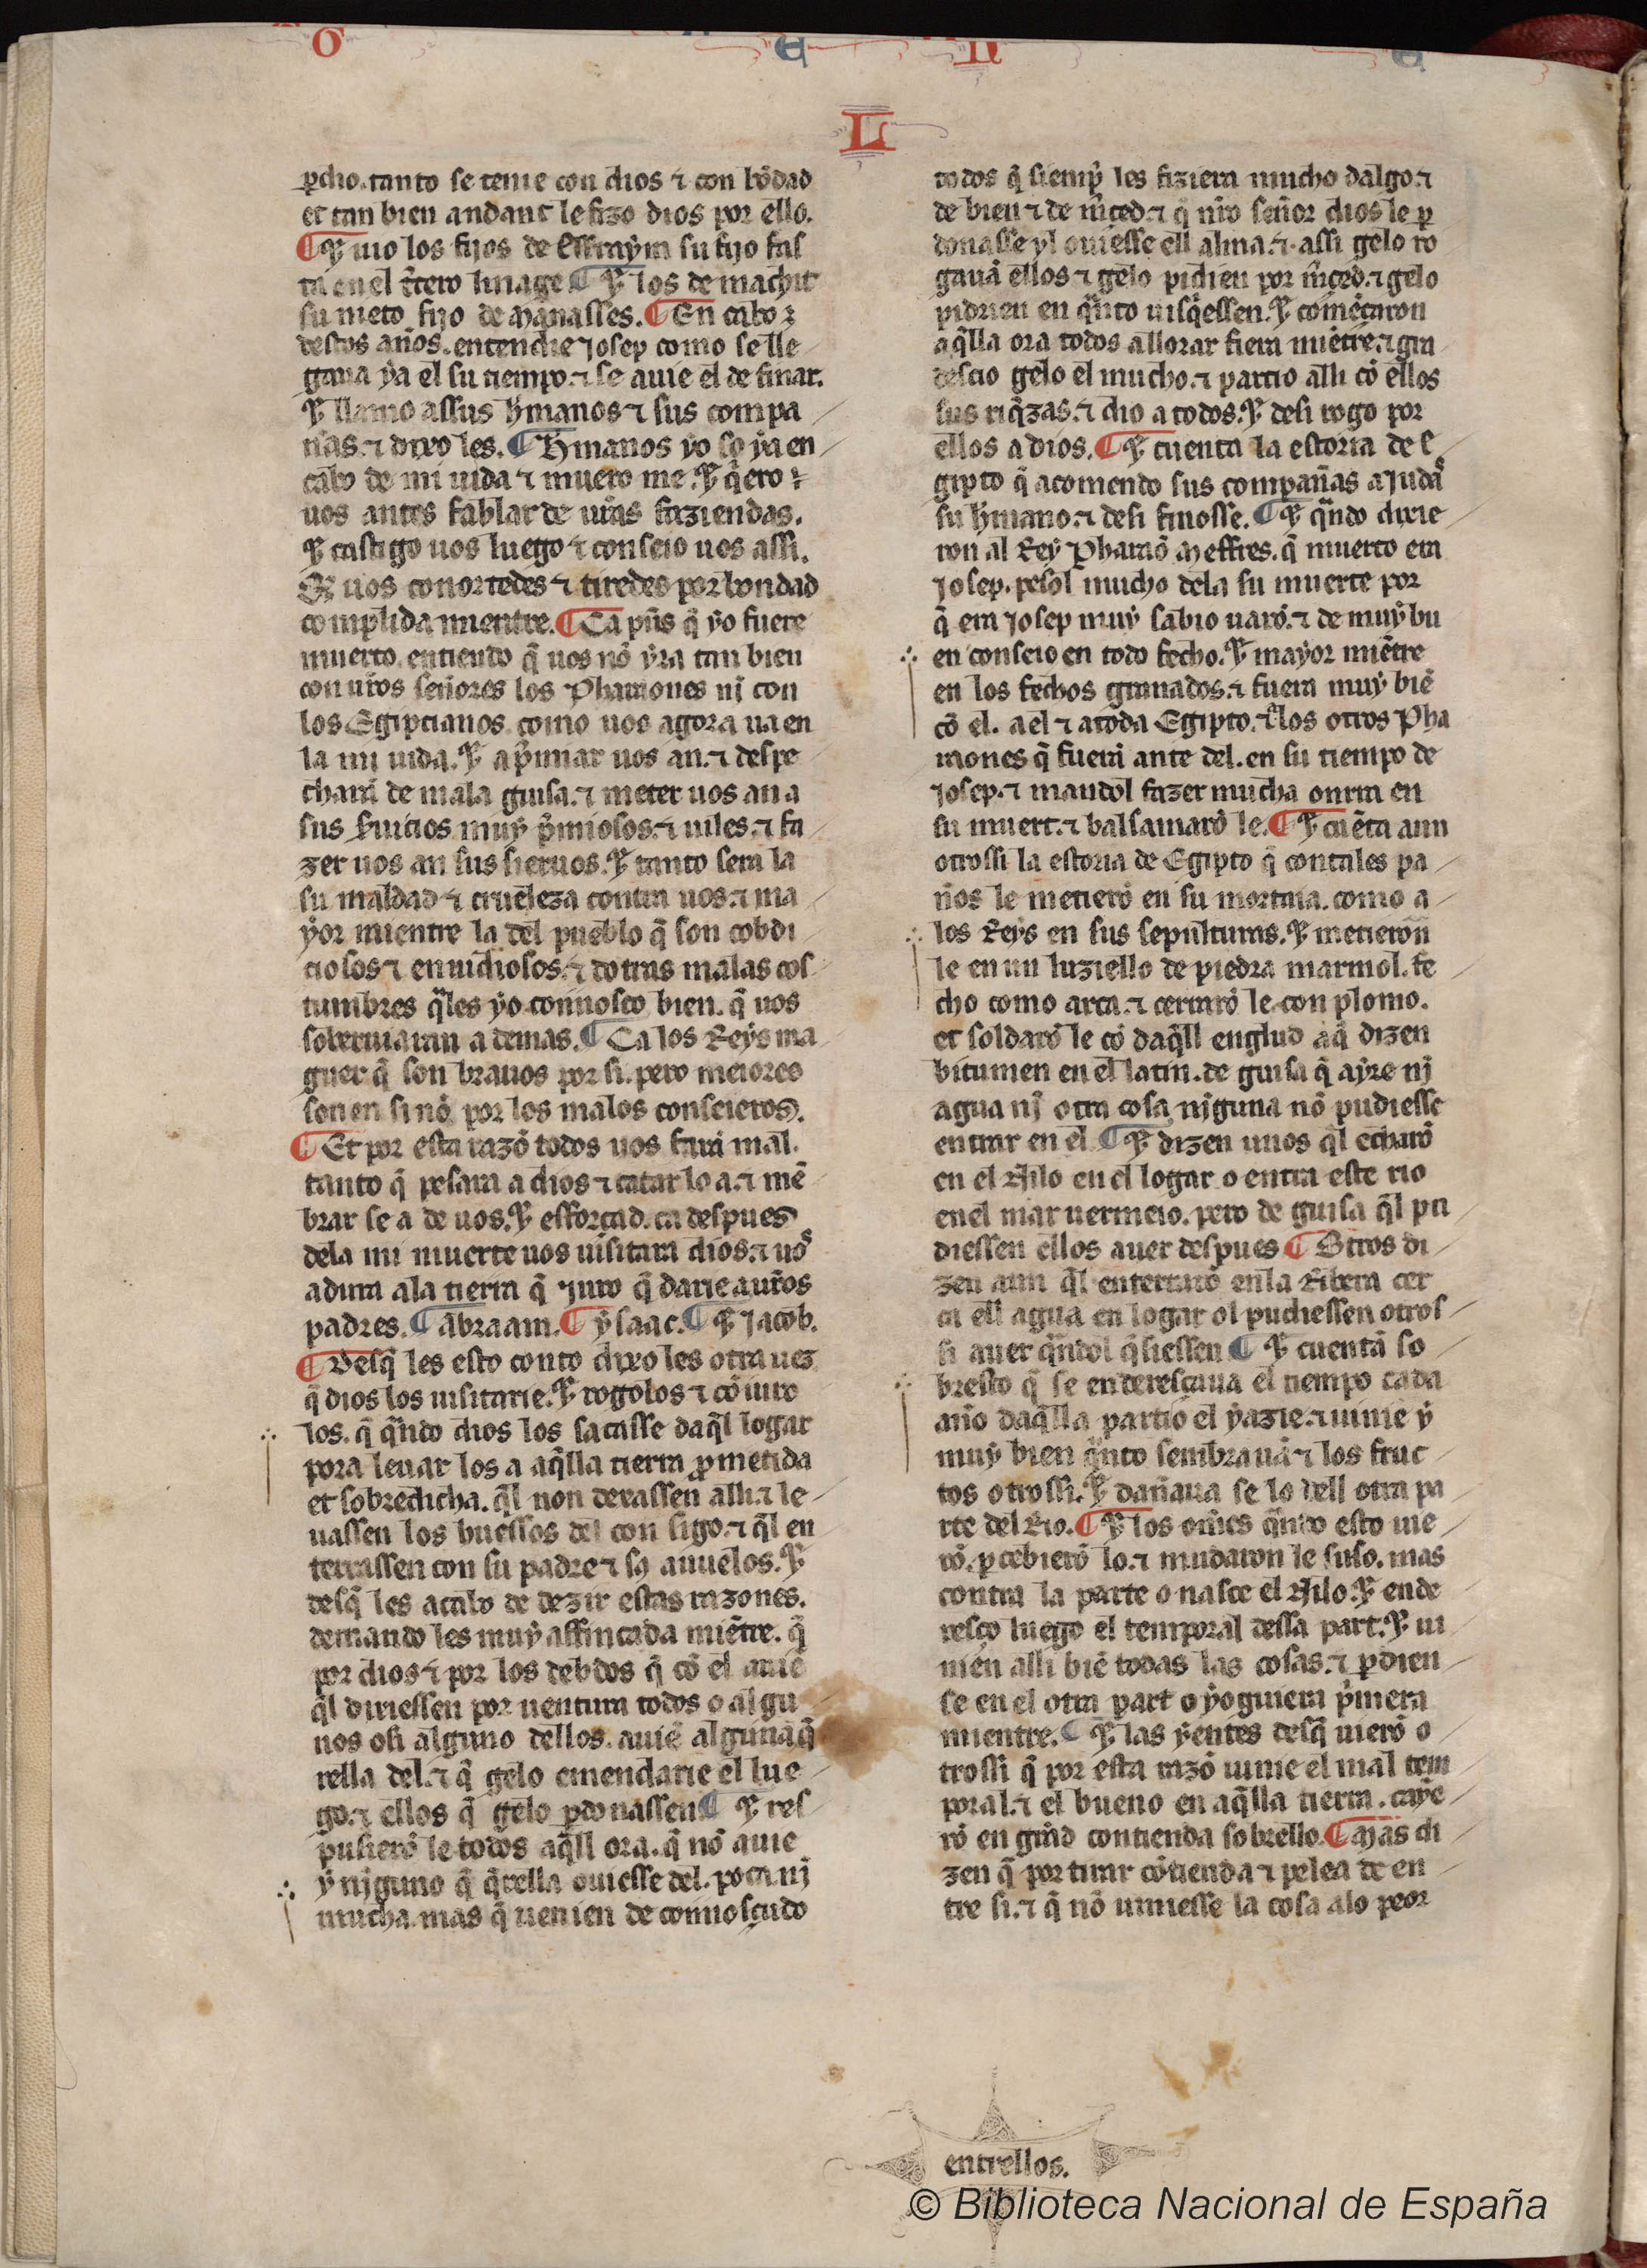 O E N E
L
ꝑcho. tanto se tenie con dios ⁊ con bõdad
et tan bien andant le fizo dios por ello.
¶ Ꞇ uio los fijos de Effraym su fijo fas
ta en el t̃cero linage ¶ Ꞇ los de machir
su nieto fijo de Manasses. ¶ En cabo
destos años. entendie Josep como se lle
gaua ya el su tiempo. ⁊ se auie el de finar.
Ꞇ llamo assus h̃manos ⁊ sus compa
ñas. ⁊ dixo les. ¶ H̃manos yo so ya en
cabo de mi uida ⁊ muero me. Ꞇ q̃ero
uos antes fablar de ur̃as faziendas.
Ꞇ castigo uos luego ⁊ conseio uos assi.
Q̃ uos conortedes ⁊ tiredes por bondad
complida mientre. ¶ Ca pũs q̃ yo fuere
muerto. entiendo q̃ uos nõ yra tan bien
con ur̃os señores los Pharaones nj con
los Egipcianos. como uos agora ua en
la mi uida. Ꞇ ap̃miar uos an. ⁊ despe
chará de mala guisa. ⁊ meter uos an a
sus s̃uicios muy p̃miosos. ⁊ uiles. ⁊ fa
zer uos an sus sieruos. Ꞇ tanto sera la
su maldad ⁊ crueleza contra uos. ⁊ ma
yor mientre la del pueblo q̃ son cobdi
ciosos ⁊ enuidiosos. ⁊ dotras malas cos
tumbres q̃les yo connosco bien. q̃ uos
soberuiaran a demas. ¶ Ca los Reys ma
guer q̃ son brauos por si. pero meiores
son en si nõ por los malos conseieros.
¶ Et por esta razõ todos uos fará mal.
tanto q̃ pesara a dios ⁊ catar lo a. ⁊ mẽ
brar se a de uos. Ꞇ esforçad. ca despues
dela mi muerte uos uisitara dios. ⁊ uos
adura ala tierra q̃ juro q̃ darie aur̃os
padres. ¶ Abraam. ¶ ysaac. ¶ Ꞇ Jacob.
¶ Desq̃ les esto conto dixo les otra uez
q̃ dios los uisitarie. Ꞇ rogolos ⁊ cõiuro
los. q̃ q̃ndo dios los sacasse daq̃l logar
pora leuar los a aq̃lla tierra ꝓmetida
et sobredicha. q̃l non dexassen alli. ⁊ le
uassen los huessos del con sigo. ⁊ q̃l en
terrassen con su padre ⁊ sꝯ auuelos. Ꞇ
desq̃ les acabo de dezir estas razones.
demando les muy affincada miẽtre. q̃
por dios ⁊ por los debdos q̃ cõ el auie
q̃l dixiessen por uentura todos o algu
nos osi alguno dellos. auiẽ alguna q̃
rella del. ⁊ q̃ gelo emendarie el lue
go. ⁊ ellos q̃ gelo ꝑdonassen ¶ Ꞇ res
pusierõ le todos aq̃ll ora. q̃ nõ auie
y njguno q̃ q̃rella ouiesse del. poca nj
mucha. mas q̃ uenien de connosçudo
todos q̃ siemp̃ les fiziera mucho dalgo. ⁊
de bien ⁊ de m̃ced. ⁊ q̃ nr̃o señor dios le ꝑ
donasse yl ouiesse ell alma. ⁊ assi gelo ro
gauã ellos ⁊ gelo pidien por m̃ced. ⁊ gelo
pidrien en q̃nto uisq̃essen. Ꞇ comẽçaron
aq̃lla ora todos allorar fiera miẽtre. ⁊ gra
descio gelo el mucho. ⁊ partio alli cõ ellos
sus riq̃zas. ⁊ dio a todos. Ꞇ desi rogo por
ellos a dios. ¶ Ꞇ cuenta la estoria de E
gipto q̃ acomendo sus compañas a Judã
su h̃mano. ⁊ desi finosse. ¶ Ꞇ q̃ndo dixie
ron al Rey Pharaõ Meffres. q̃ muerto era
Josep. pesol mucho dela su muerte por
q̃ era Josep muy sabio uarõ. ⁊ de muy bu
en conseio en todo fecho. Ꞇ mayor miẽtre
en los fechos granados. ⁊ fuera muy biẽ
cõ el. a el ⁊ atoda Egipto. ⁊ alos otros Pha
raones q̃ fuerã ante del. en su tiempo de
Josep. ⁊ mandol fazer mucha onrra en
su muert. ⁊ balsamarõ le. ¶ Ꞇ cuẽta aun
otrossi la estoria de Egipto q̃ contales pa
ños le metierõ en su mortaia. como a
los Reys en sus sepulturas. Ꞇ metieron
le en un luziello de piedra marmol. fe
cho como arca. ⁊ cerrarõ le con plomo.
et soldarõ le cõ daq̃ll englud aq̃ dizen
bitumen en el latin. de guisa q̃ ayre nj
agua nj otra cosa njguna nõ pudiesse
entrar en el. ¶ Ꞇ dizen unos q̃l echarõ
en el Nilo en el logar o entra este rio
enel mar uermeio. pero de guisa q̃l pu
diessen ellos auer despues ¶ Otros di
zen aun q̃l enterrarõ enla Ribera cer
ca ell agua en logar ol pudiessen otros
si auer q̃ndol q̃siessen ¶ Ꞇ cuentã so
bresto q̃ se enderesçaua el tiempo cada
año daq̃lla partio el yazie. ⁊ uinie y
muy bien q̃nto sembrauã ⁊ los fruc
tos otrossi. Ꞇ dañaua se lo dell otra pa
rte del Rio. ¶ Ꞇ los om̃es q̃ndo esto uie
rõ. ꝑcebierõ lo. ⁊ mudaron le suso. mas
contra la parte o nasce el Nilo. Ꞇ ende
resço luego el temporal dessa part. Ꞇ ui
nien alli biẽ todas las cosas. ⁊ ꝑdien
se en el otra part o yoguiera p̃mera
mientre. ¶ Ꞇ las yentes desq̃ uierõ o
trossi q̃ por esta razõ uinie el mal tem
poral. ⁊ el bueno en aq̃lla tierra. caye
rõ en grãd contienda sobrello. ¶ Mas di
zen q̃ por tirar cõtienda ⁊ pelea de en
tre si. ⁊ q̃ nõ uiniesse la cosa alo peor
entrellos.
© Biblioteca Nacional de España